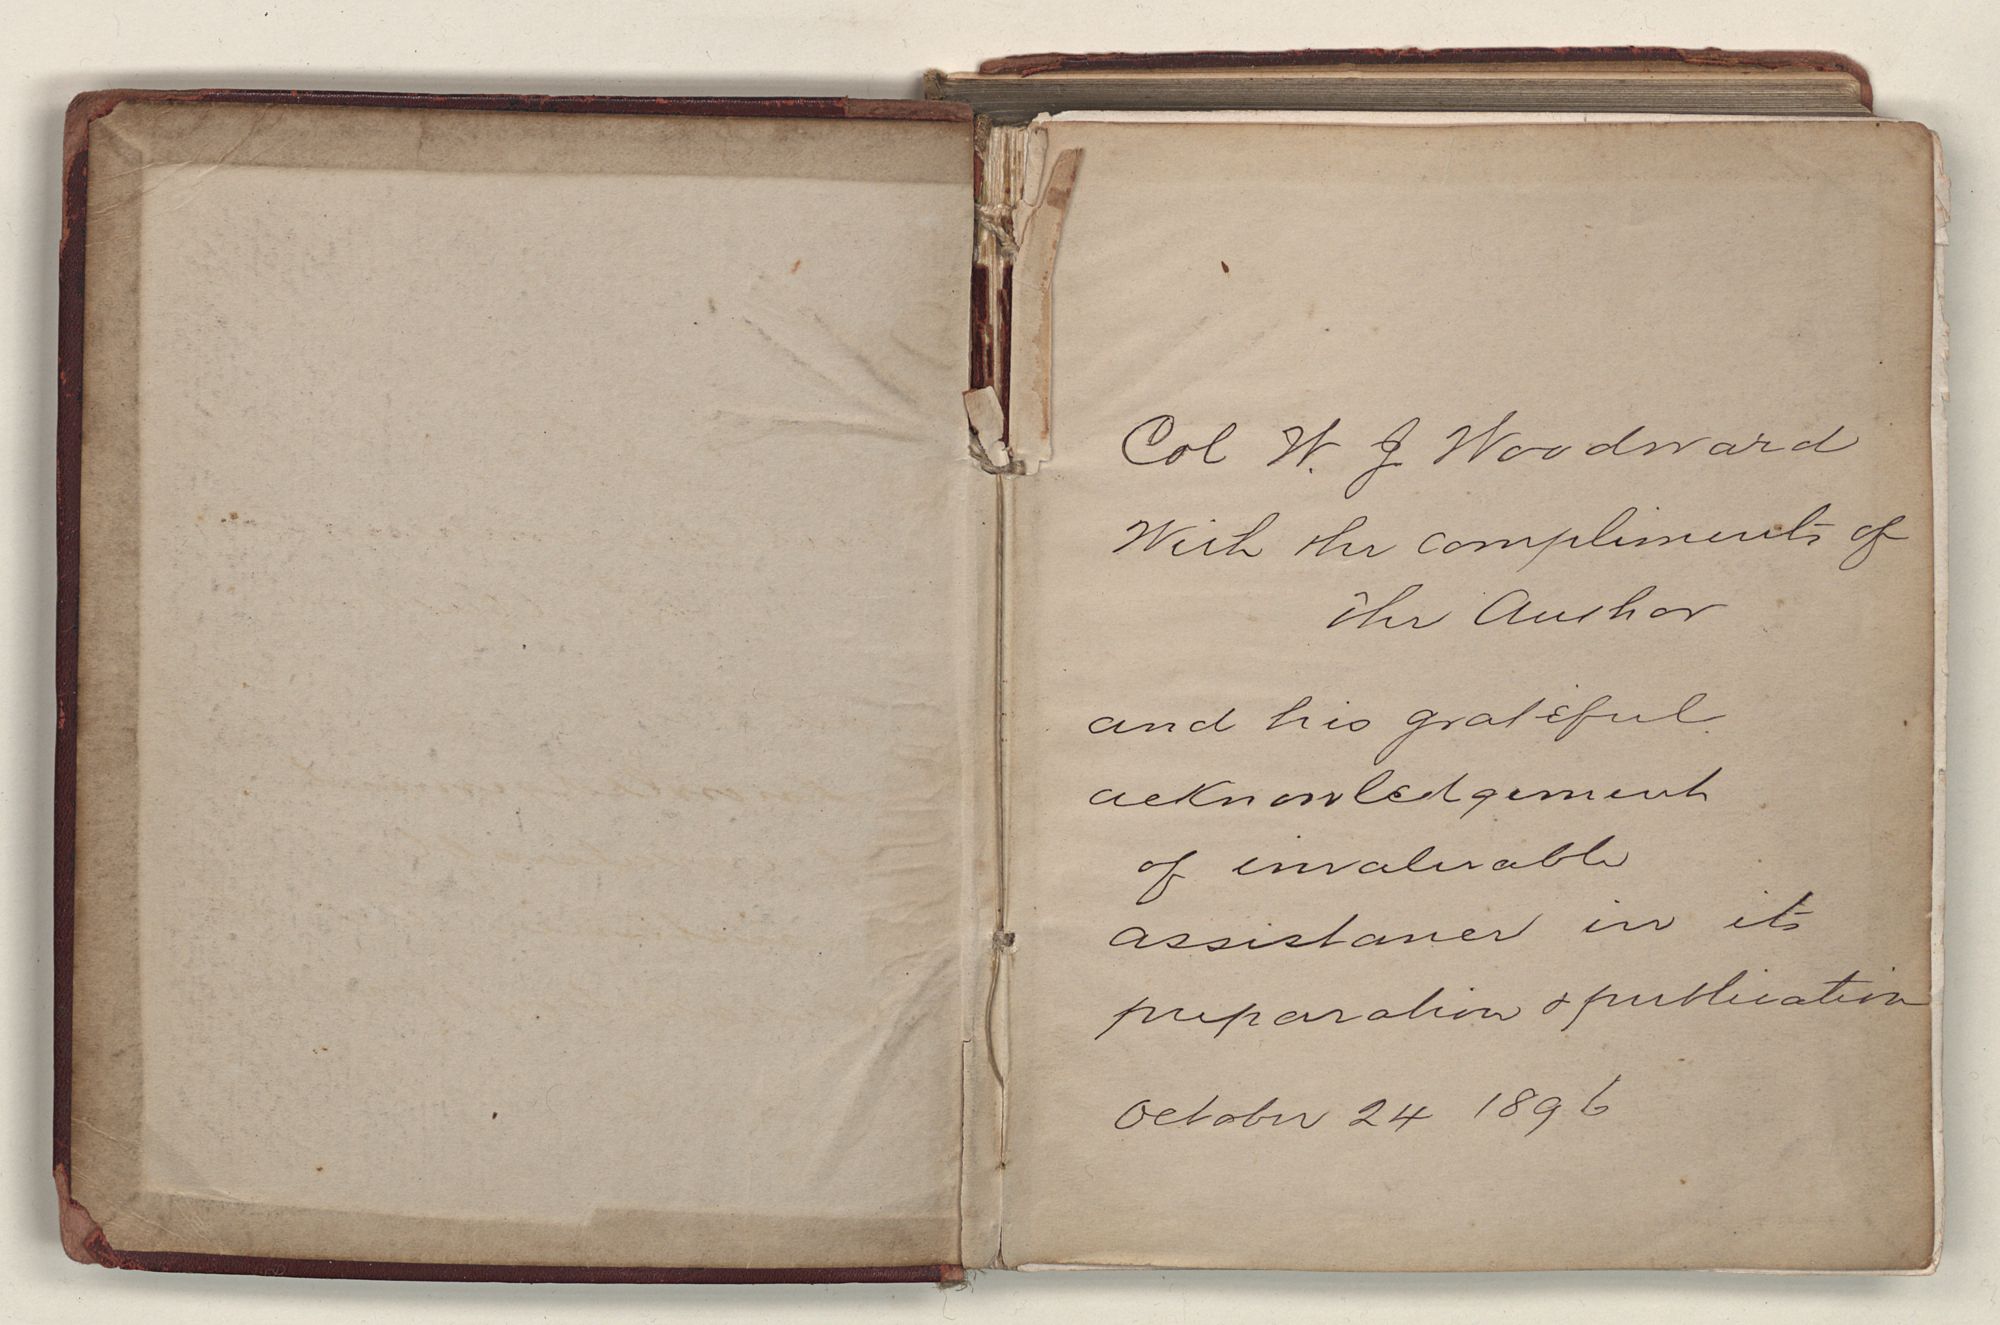 Col W. J Woodward
With the compliments of
the Author
and his grateful
acknowledgement
of invaluable
assistance in its
preparation & publication
October 24 1896